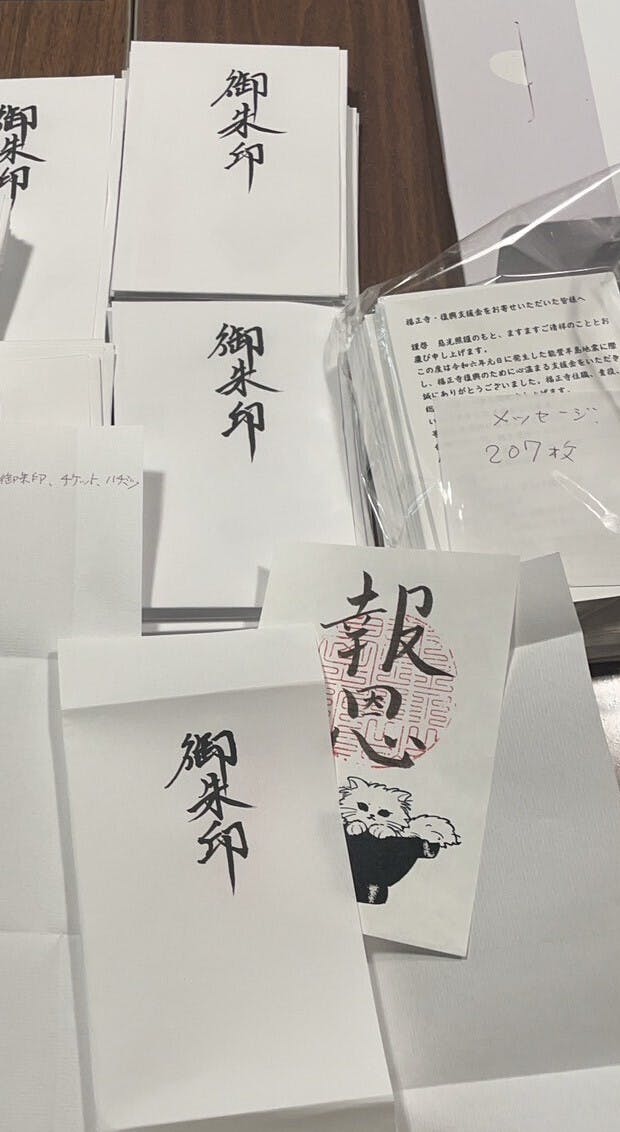 御朱印
御朱印
御朱印
福正寺・復興支援金をお寄せいただいた皆様へ
謹啓 慈光照護のもと、ますますご清祥のこととお
慶び申し上げます。
この度は令和六年元日に発生した能登半島地震に際
し、福正寺復興のために心温まる支援金をいただき
誠にありがとうございました。福正寺住職、責役、
メッセージ
207枚
御朱印、チケット、ハチミツ
報恩
御朱印